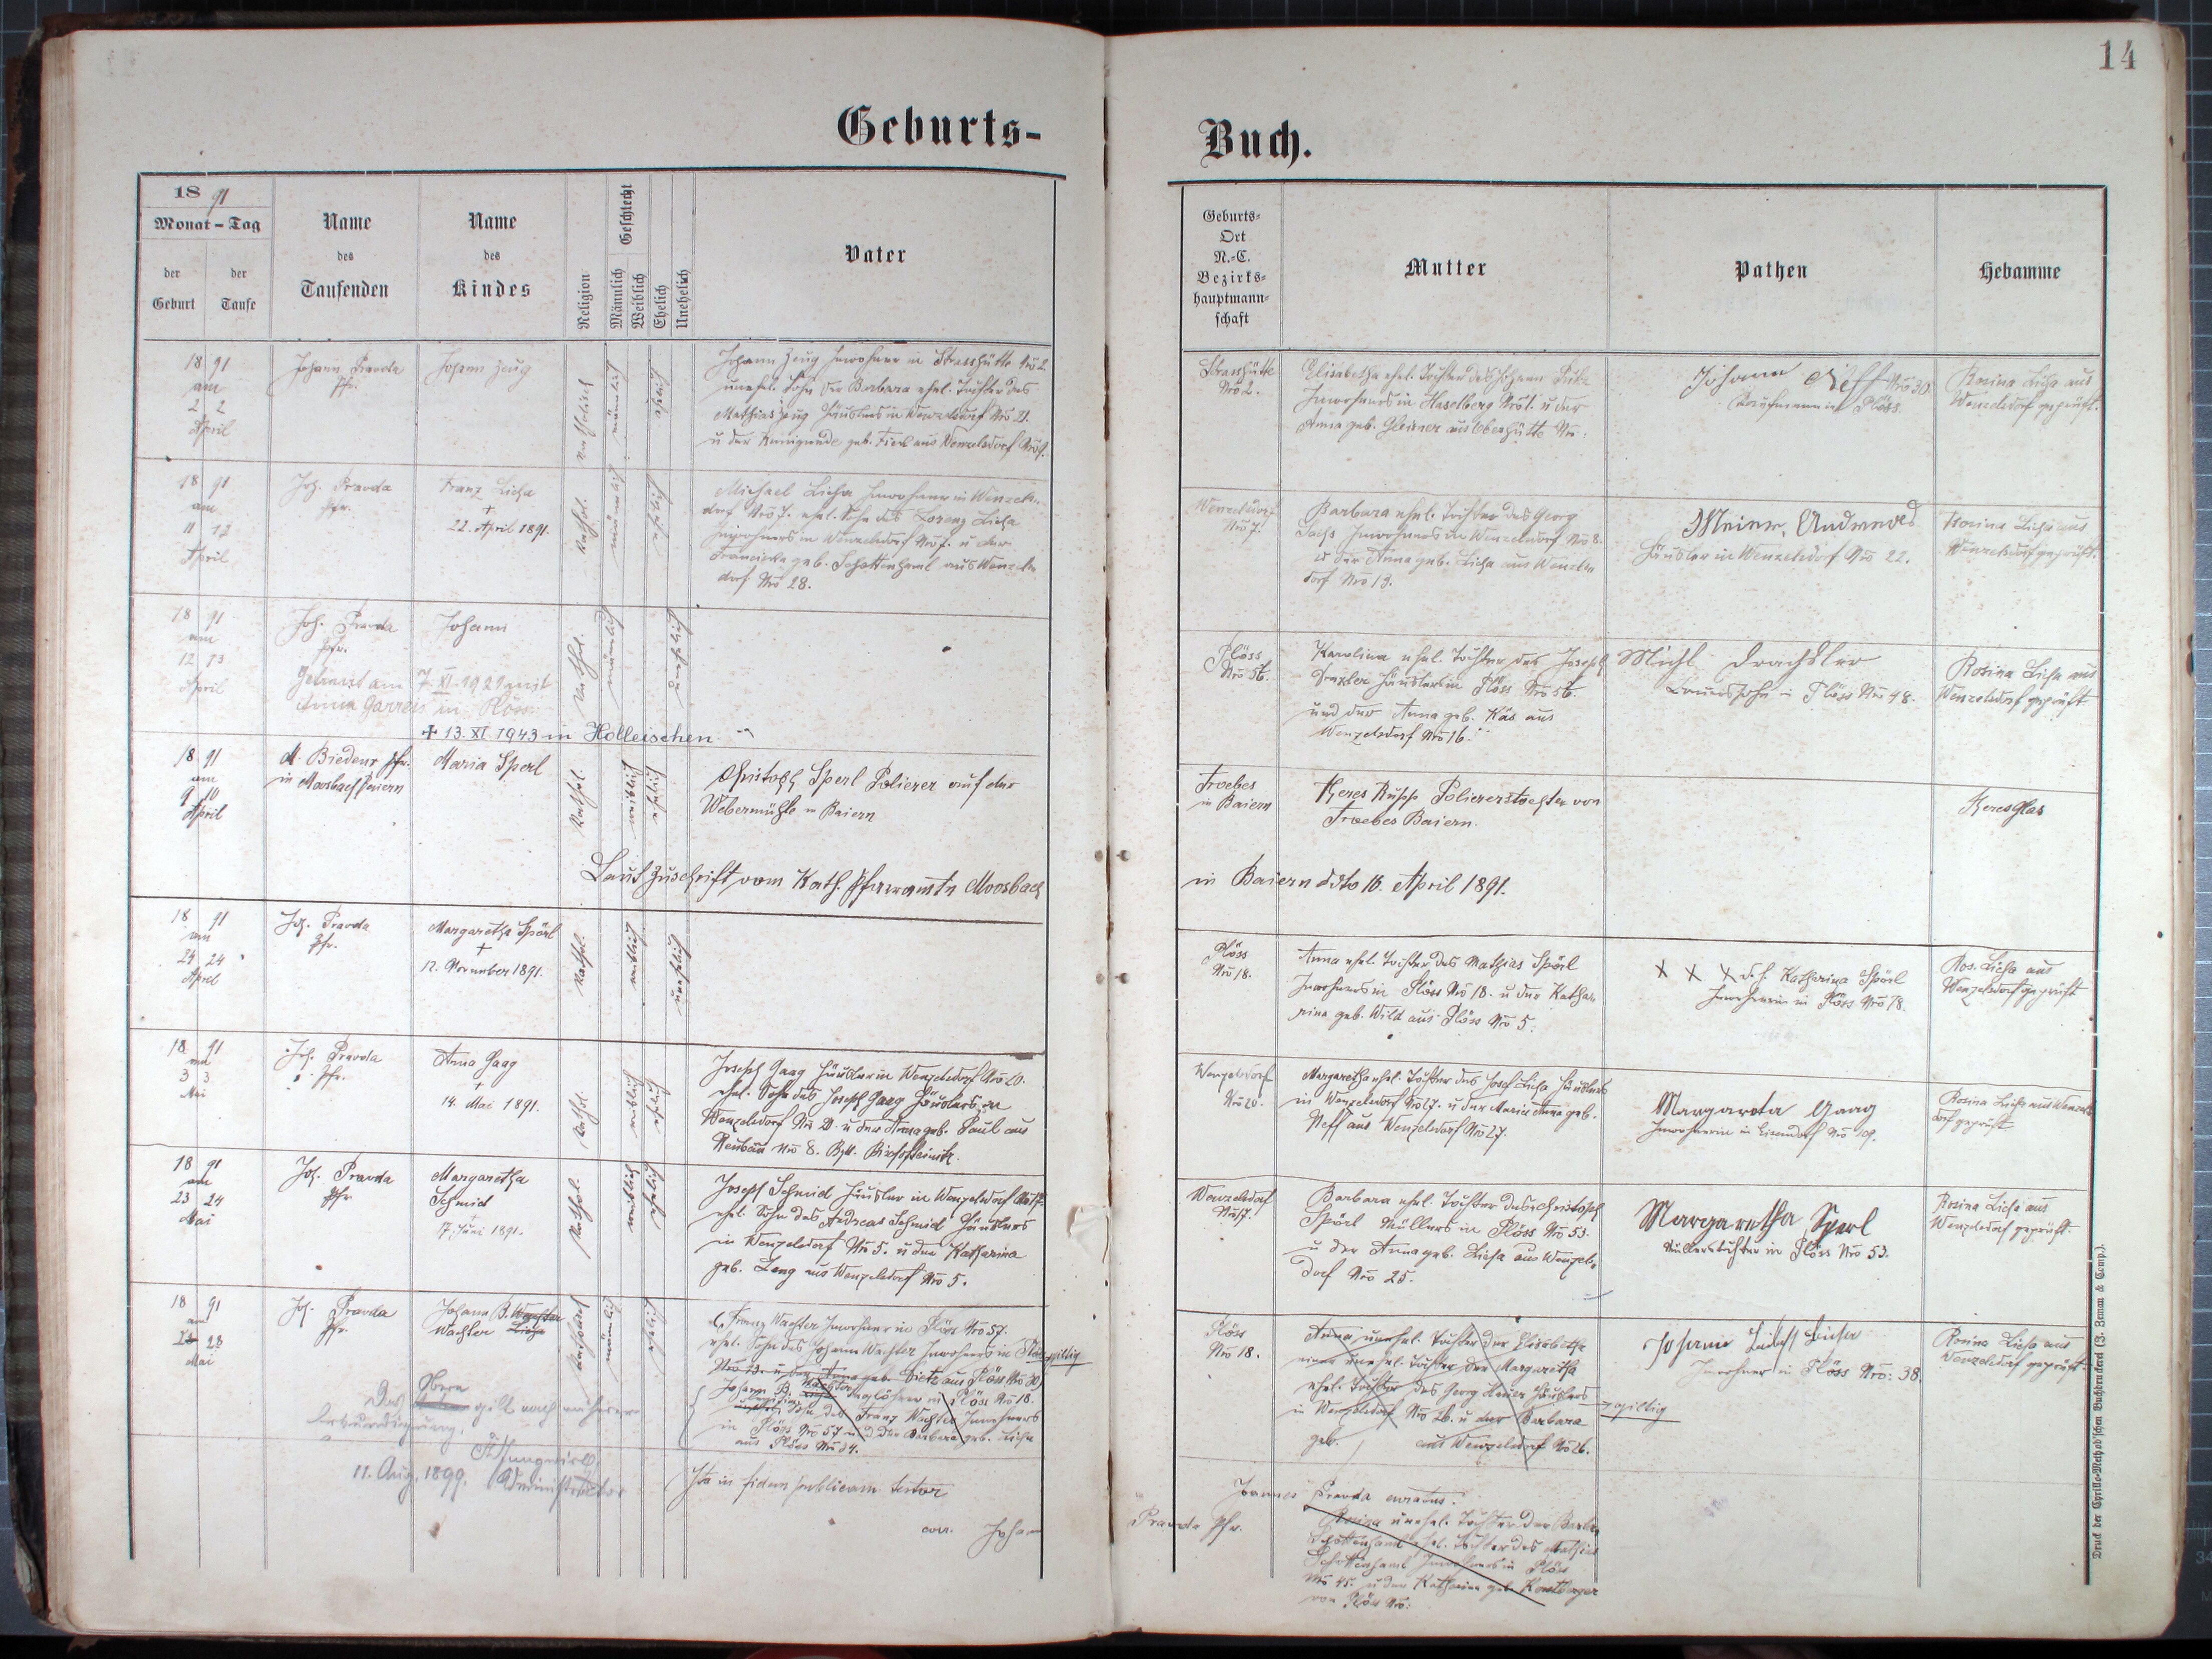 14
Geburts-
Buch.
18 91
Monat - Tag
der Geburt
der Taufe
Name des Taufenden
Name des Kindes
Religion
Geschlecht
Männlich
Weiblich
Ehelich
Unehelich
Vater
Geburts-
Ort
N.-C.
Bezirks-
hauptmann-
schaft
Mutter
Pathen
Hebamme
18 91
am
2 2
April
Johann Pravda
Pfr.
Johann Zeug
katholisch
männlich
ehelich
Johann Zeug Inwohner in Strasshütte Nro 2
unehel. Sohn der Barbara ehel. Tochter des
Mathias Zeug Häuslers in Wenzelsdorf Nro 21.
u der Kunigunde geb. aus Wenzelsdorf
Strasshütte
Nro 2.
Elisabetha ehel. Tochter des Johann
Inwohners in Haselberg Nro 1. u der
Anna geb. Gleisner aus Oberhütte Nro:
Johann Neff Nro 30.
Kaufmann in Plöss.
Rosina Licha aus
Wenzelsdorf geprüft.
18 91
am
11 12
April
Joh. Pravda
Pfr.
Franz Licha
†
22. April 1891.
kathol.
männlich
ehelich
Michael Licha Inwohner in Wenzels-
dorf Nro 7. ehel. Sohn des Lorenz Licha
Inwohners in Wenzelsdorf Nro 7. u der
Franciska geb. Schottenhaml aus Wenzels
dorf Nro 28.
Wenzelsdorf
Nro 7.
Barbara ehel. Tochter des Georg
Sachs Inwohners in Wenzelsdorf Nro 8.
u der Anna geb. Licha aus Wenzels
dorf Nro 13.
Meier, Andreas
Häusler in Wenzelsdorf Nro 22.
Rosina Licha aus
Wenzelsdorf geprüft.
18 91
am
12 13
April
Joh. Pravda
Pfr.
Johann
Getraut am 7. XI. 1921 mit
Anna Garreis in Plöss.
† 13. XI. 1943 in Holleischen
kathol.
männlich
unehelich
Plöss
Nro 56.
Karolina ehel. Tochter des Joseph
Drexler Häuslers in Plöss Nro 56.
und der Anna geb. Käs aus
Wenzelsdorf Nro 16.
Michl Drachsler
Bauerssohn in Plöss Nro 48.
Rosina Licha aus
Wenzelsdorf geprüft
18 91
am
9 10
April
A. Biederer Pfr.
in Moosbach Baiern
Maria Sperl
kathol.
weiblich
ehelich
Christoph Sperl Polierer auf der
Webermühle in Baiern
Troebes
in Baiern
Theres Rupp Poliererstochter von
Troebes Baiern.
Theres Glas
Laut Zuschrift vom Kath. Pfarramte Moosbach
in Baiern ddto 16. April 1891.
18 91
am
24 24
April
Joh. Pravda
Pfr.
Margaretha Spörl
†
12. November 1891.
kathol.
weiblich
unehelich
Plöss
Nro 18.
Anna ehel. Tochter des Mathias Spörl
Inwohners in Plöss Nro 18. u der Katha-
rina geb. Wild aus Plöss Nro 5.
X X X d.h. Katharina Spörl
Inwohnerin in Plöss Nro 18.
Ros. Licha aus
Wenzelsdorf geprüft
18 91
am
3 3
Mai
Joh. Pravda
Pfr.
Anna Gaag
†
14. Mai 1891.
kathol.
weiblich
ehelich
Joseph Gaag Häusler in Wenzelsdorf Nro 20.
ehel. Sohn des Joseph Gaag Häuslers in
Wenzelsdorf Nro 20 u der Anna geb. Paul aus
Neubau Nro 8. Bischofteinitz.
Wenzelsdorf
Nro 20.
Margaretha ehel. Tochter des Josef Licha Häuslers
in Wenzelsdorf Nro 27. u der Maria Anna geb.
Neff aus Wenzelsdorf Nro 27.
Margareta Gaag
Inwohnerin in
Rosina Licha aus Wenzels
dorf geprüft
18 91
am
23 24
Mai
Joh. Pravda
Pfr
Margaretha
Schmid
17. Juni 1891.
kathol.
weiblich
ehelich
Joseph Schmid Häusler in Wenzelsdorf Nro 17.
ehel. Sohn des Andreas Schmid Häuslers
in Wenzelsdorf Nro 5. u der Katharina
geb. Lang aus Wenzelsdorf Nro 5.
Wenzelsdorf
Nro 17.
Barbara ehel. Tochter des Christoph
Spörl Müllers in Plöss Nro 53.
u der Anna geb. Licha aus Wenzels-
dorf Nro 25.
Margaretha Sperl
Müllerstochter in Plöss Nro 53.
Rosina Licha aus
Wenzelsdorf geprüft.
18 91
am
28
Mai
Joh. Pravda
Pfr.
Johann B. Wachter
Wachter Licha
katholisch
männlich
ehelich
Franz Wachter Inwohner in Plöss Nro 57.
ehel. Sohn des Johann Wachter Inwohners in Plöss giltig
Nro 13. u der Anna geb. Dietz aus Plöss Nro 30)
Johann B. Wachter in Plöss Nro 18.
Sohn des Franz Wachter Inwohners
in Plöss Nro 57 und der Barbara geb. Licha
aus Plöss Nro 34.
Plöss
Nro 18.
Anna unehel. Tochter der Elisabetha
einer unehel. Tochter der Margaretha
ehel. Tochter des Georg Häuslers giltig
in Wenzelsdorf Nro 26. u der Barbara
geb. aus Wenzelsdorf Nro 26.
Johann Licha
Inwohner in Plöss Nro: 38.
Rosina Licha aus
Wenzelsdorf geprüft
Das Obere gilt nach
11. Aug. 1899. Administrator
Ita in fidem publicam testor
Joannes Pravda curatus.
Johann
Pravda Pfr.
unehel. Tochter der Barbara
Schottenhaml ehel. Tochter des Mathias
Schottenhaml Inwohners in Plöss
Nro 45. u der Katharina geb.
von Plöss Nro:
Druck der Cyrillo-Method'schen Buchdruckerei (J. Zeman & Comp.).